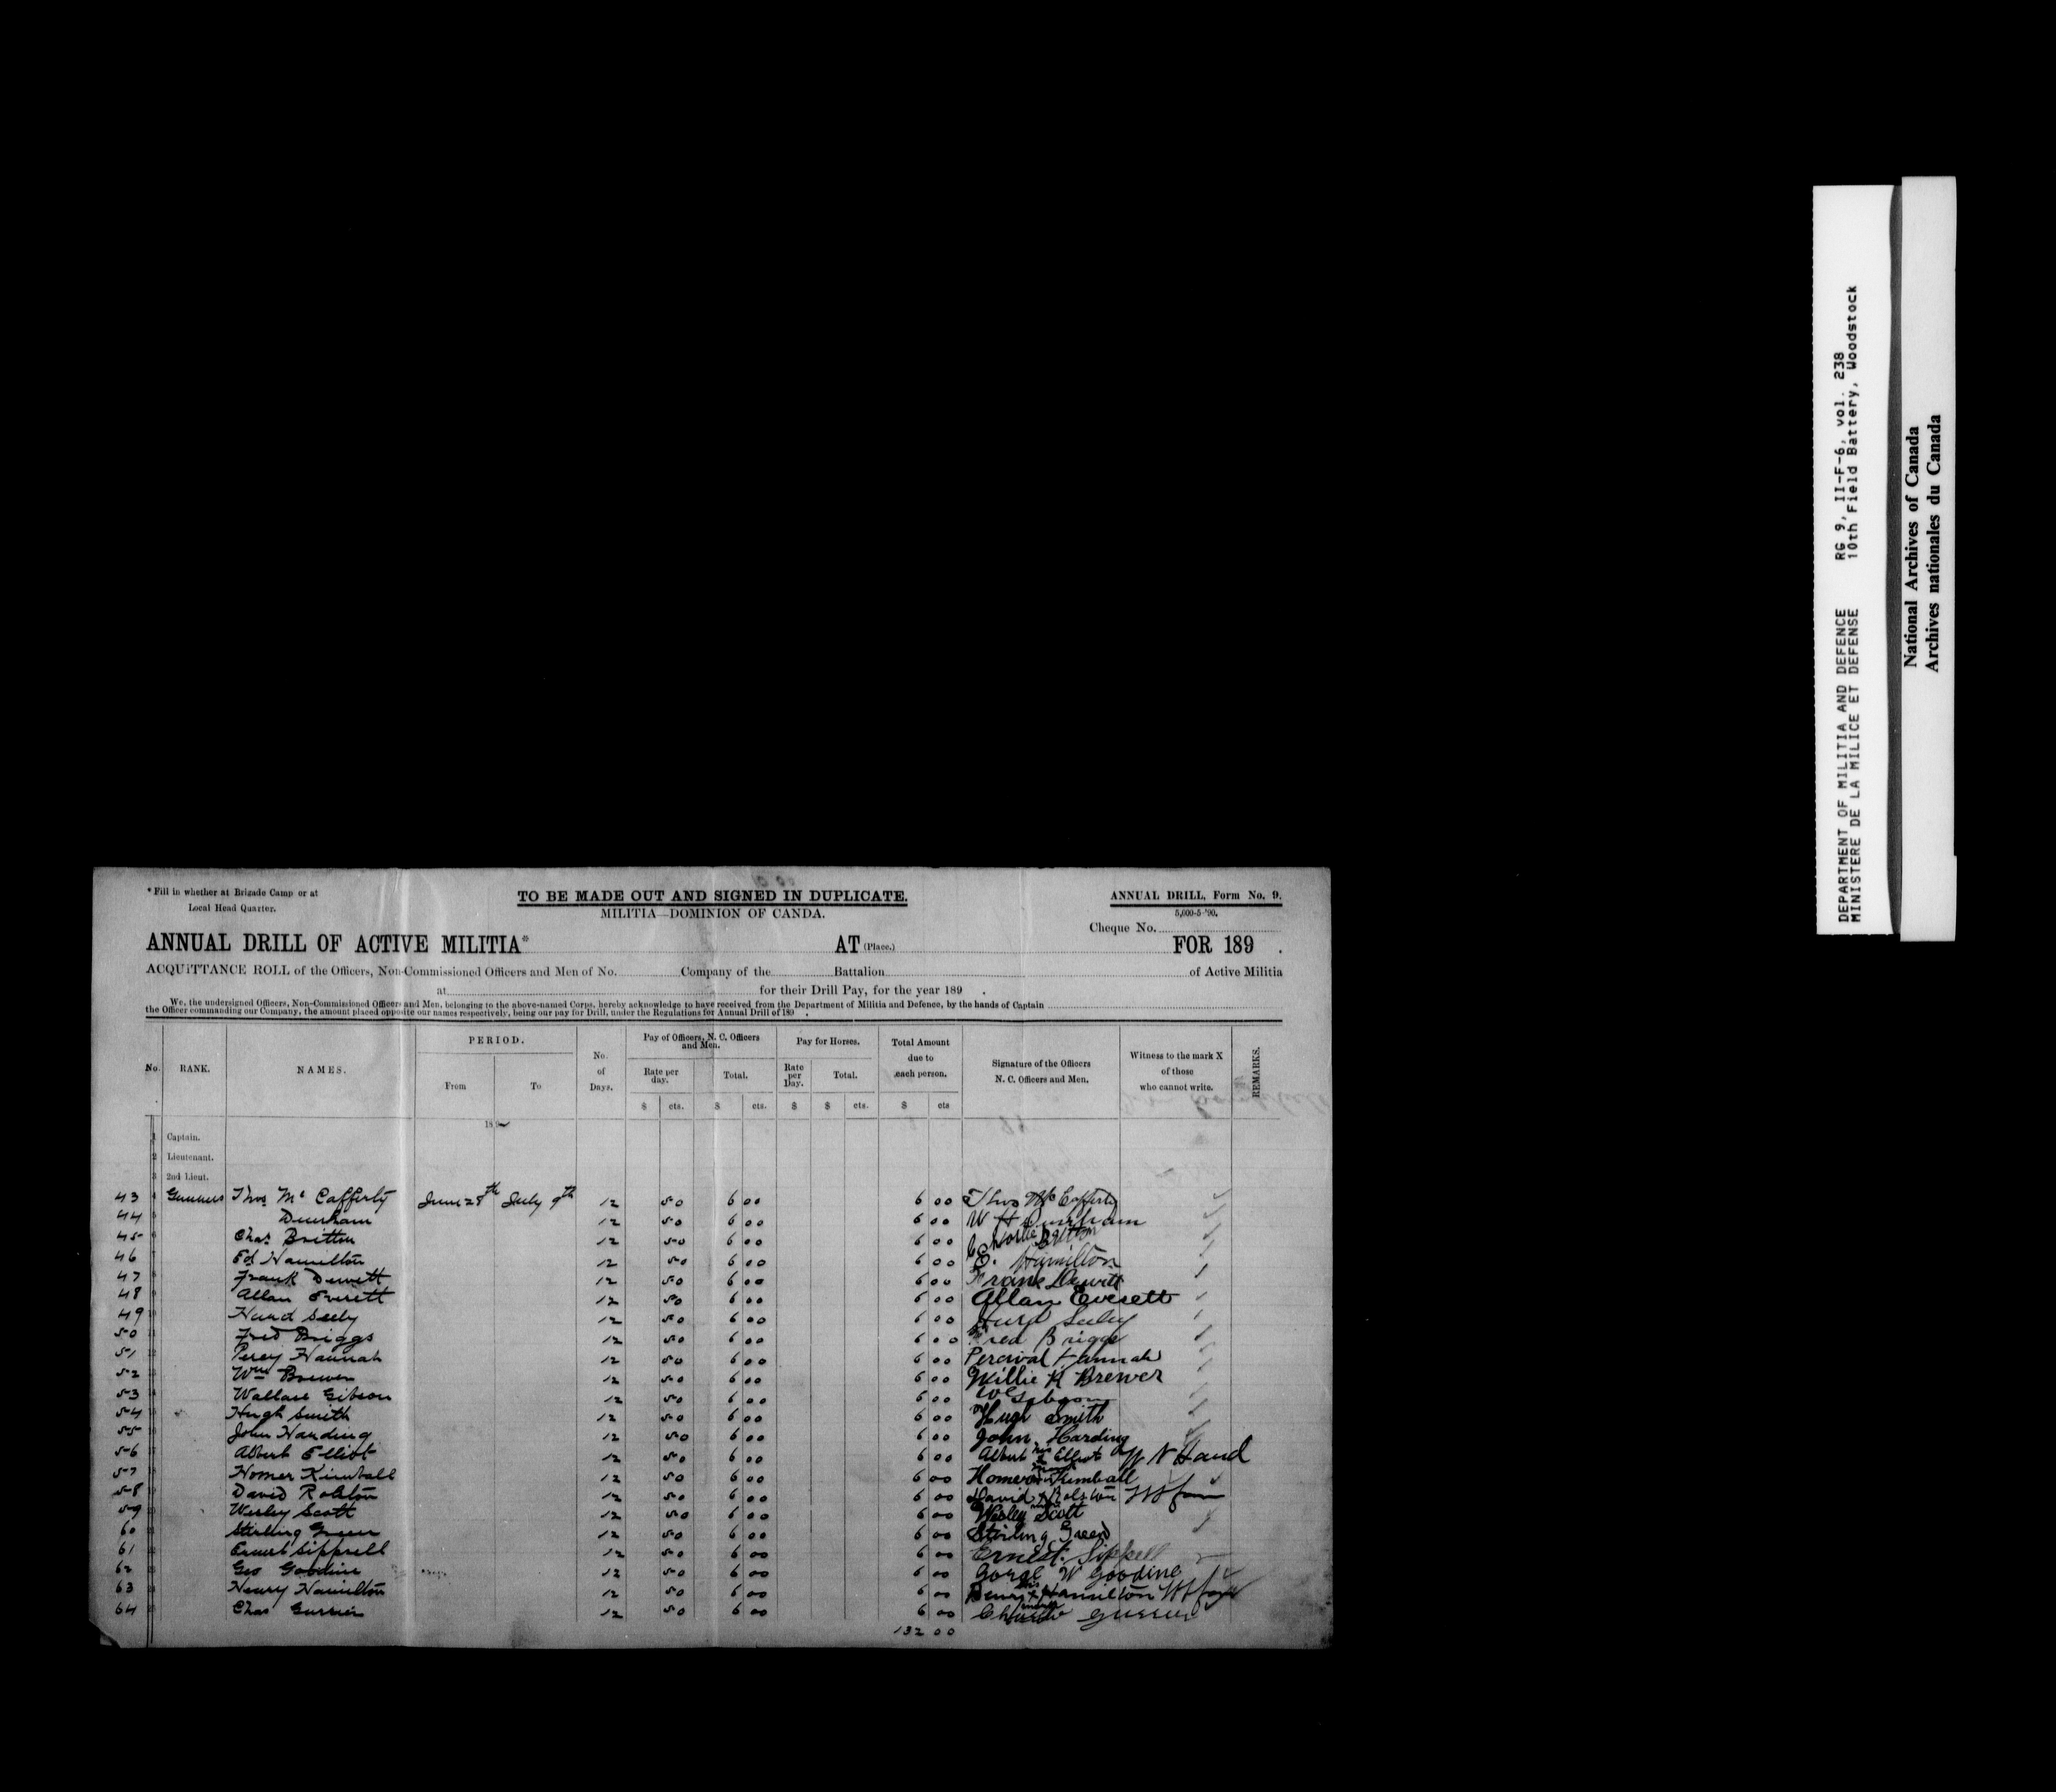 * Fill in whether at Brigade Camp or at
Local Head Quarter.
TO BE MADE OUT AND SIGNED IN DUPLICATE.
MILITIA—DOMINION OF CANDA.
ANNUAL DRILL, Form No. 9.
5,000-5-'90.
Cheque No.
ANNUAL DRILL OF ACTIVE MILITIA* AT (Place.) FOR 189 .
ACQUITTANCE ROLL of the Officers, Non-Commissioned Officers and Men of No. Company of the Battalion of Active Militia
at for their Drill Pay, for the year 189 .
We, the undersigned Officers, Non-Commissioned Officers and Men, belonging to the above-named Corps, hereby acknowledge to have received from the Department of Militia and Defence, by the hands of Captain
the Officer commanding our Company, the amount placed opposite our names respectively, being our pay for Drill, under the Regulations for Annual Drill of 189 .
No. RANK. NAMES. PERIOD. From To No. of Days. Pay of Officers, N. C. Officers and Men. Rate per day. Total. Pay for Horses. Rate per Day. Total. Total Amount due to each person. Signature of the Officers N. C. Officers and Men. Witness to the mark X of those who cannot write. REMARKS.
$ cts. $ cts. $ $ cts. $ cts
18
1 Captain.
2 Lieutenant.
3 2nd Lieut.
43 Gunners Thos Mc Cafferty June 28th July 9th 12 50 6 00 6 00 Thos McCafferty
44 Durham 12 50 6 00 6 00 W H Durham
45 Chas Britton 12 50 6 00 6 00 Charlie Britton
46 Ed Hamilton 12 50 6 00 6 00 E. Hamilton
47 Frank Dewitt 12 50 6 00 6 00 Frank Dewitt
48 Allan Everett 12 50 6 00 6 00 Allan Everett
49 Hurd Seely 12 50 6 00 6 00 Hurd Seeley
50 Fred Briggs 12 50 6 00 6 00 Fred Briggs
51 Percy Hannah 12 50 6 00 6 00 Percival Hannah
52 Wm Brewer 12 50 6 00 6 00 Willie R Brewer
53 Wallace Gibson 12 50 6 00 6 00 W Gibson
54 Hugh Smith 12 50 6 00 6 00 Hugh Smith
55 John Harding 12 50 6 00 6 00 John Harding
56 Albert Elliot 12 50 6 00 6 00 Albert his x mark Elliot W N Hand
57 Homer Kimball 12 50 6 00 6 00 Homer Kimball
58 David Rolston 12 50 6 00 6 00 David x Rolston mark
59 Wesley Scott 12 50 6 00 6 00 Wesley Scott
60 Stirling Green 12 50 6 00 6 00 Stirling Green
61 Ernest Sipprell 12 50 6 00 6 00 Ernest Sippell
62 Geo Goodine 12 50 6 00 6 00 Gorge W Goodine
63 Henry Hamilton 12 50 6 00 6 00 Henry his x mark Hamilton
64 Chas Gurrier 12 50 6 00 6 00 Charlie Gurrier
132 00
DEPARTMENT OF MILITIA AND DEFENCE RG 9, II-F-6, vol. 238
MINISTERE DE LA MILICE ET DEFENSE 10th Field Battery, Woodstock
National Archives of Canada
Archives nationales du Canada